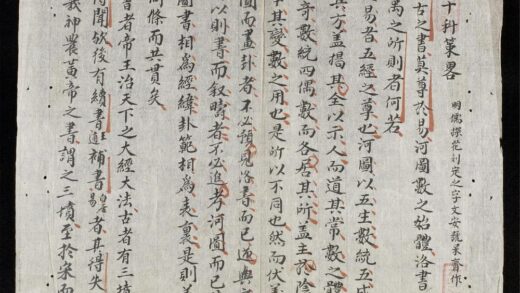 十科策畧
明儒探花刘定之字文安號呆齋作
古之書莫尊於易河圖數之始體洛書
禹之所則者何若
易者五經之掌也河圖以五生數統五成
其方盖揭其全以示人而道其常數之體
奇數統四偶數而各居其所盖主於陰
其變數之用也是所以不同也然而伏羲
圖而畫卦者不必預見洛書而已逆與
以則書而叙疇者不必追考河圖而已
圖書相為經緯卦範相為表裏是則
同條而共貫矣
者帝王治天下之大經大法古者有三墳
得聞欤後有續書補書者其得失
羲神農黃帝之書謂之三墳至於宋而